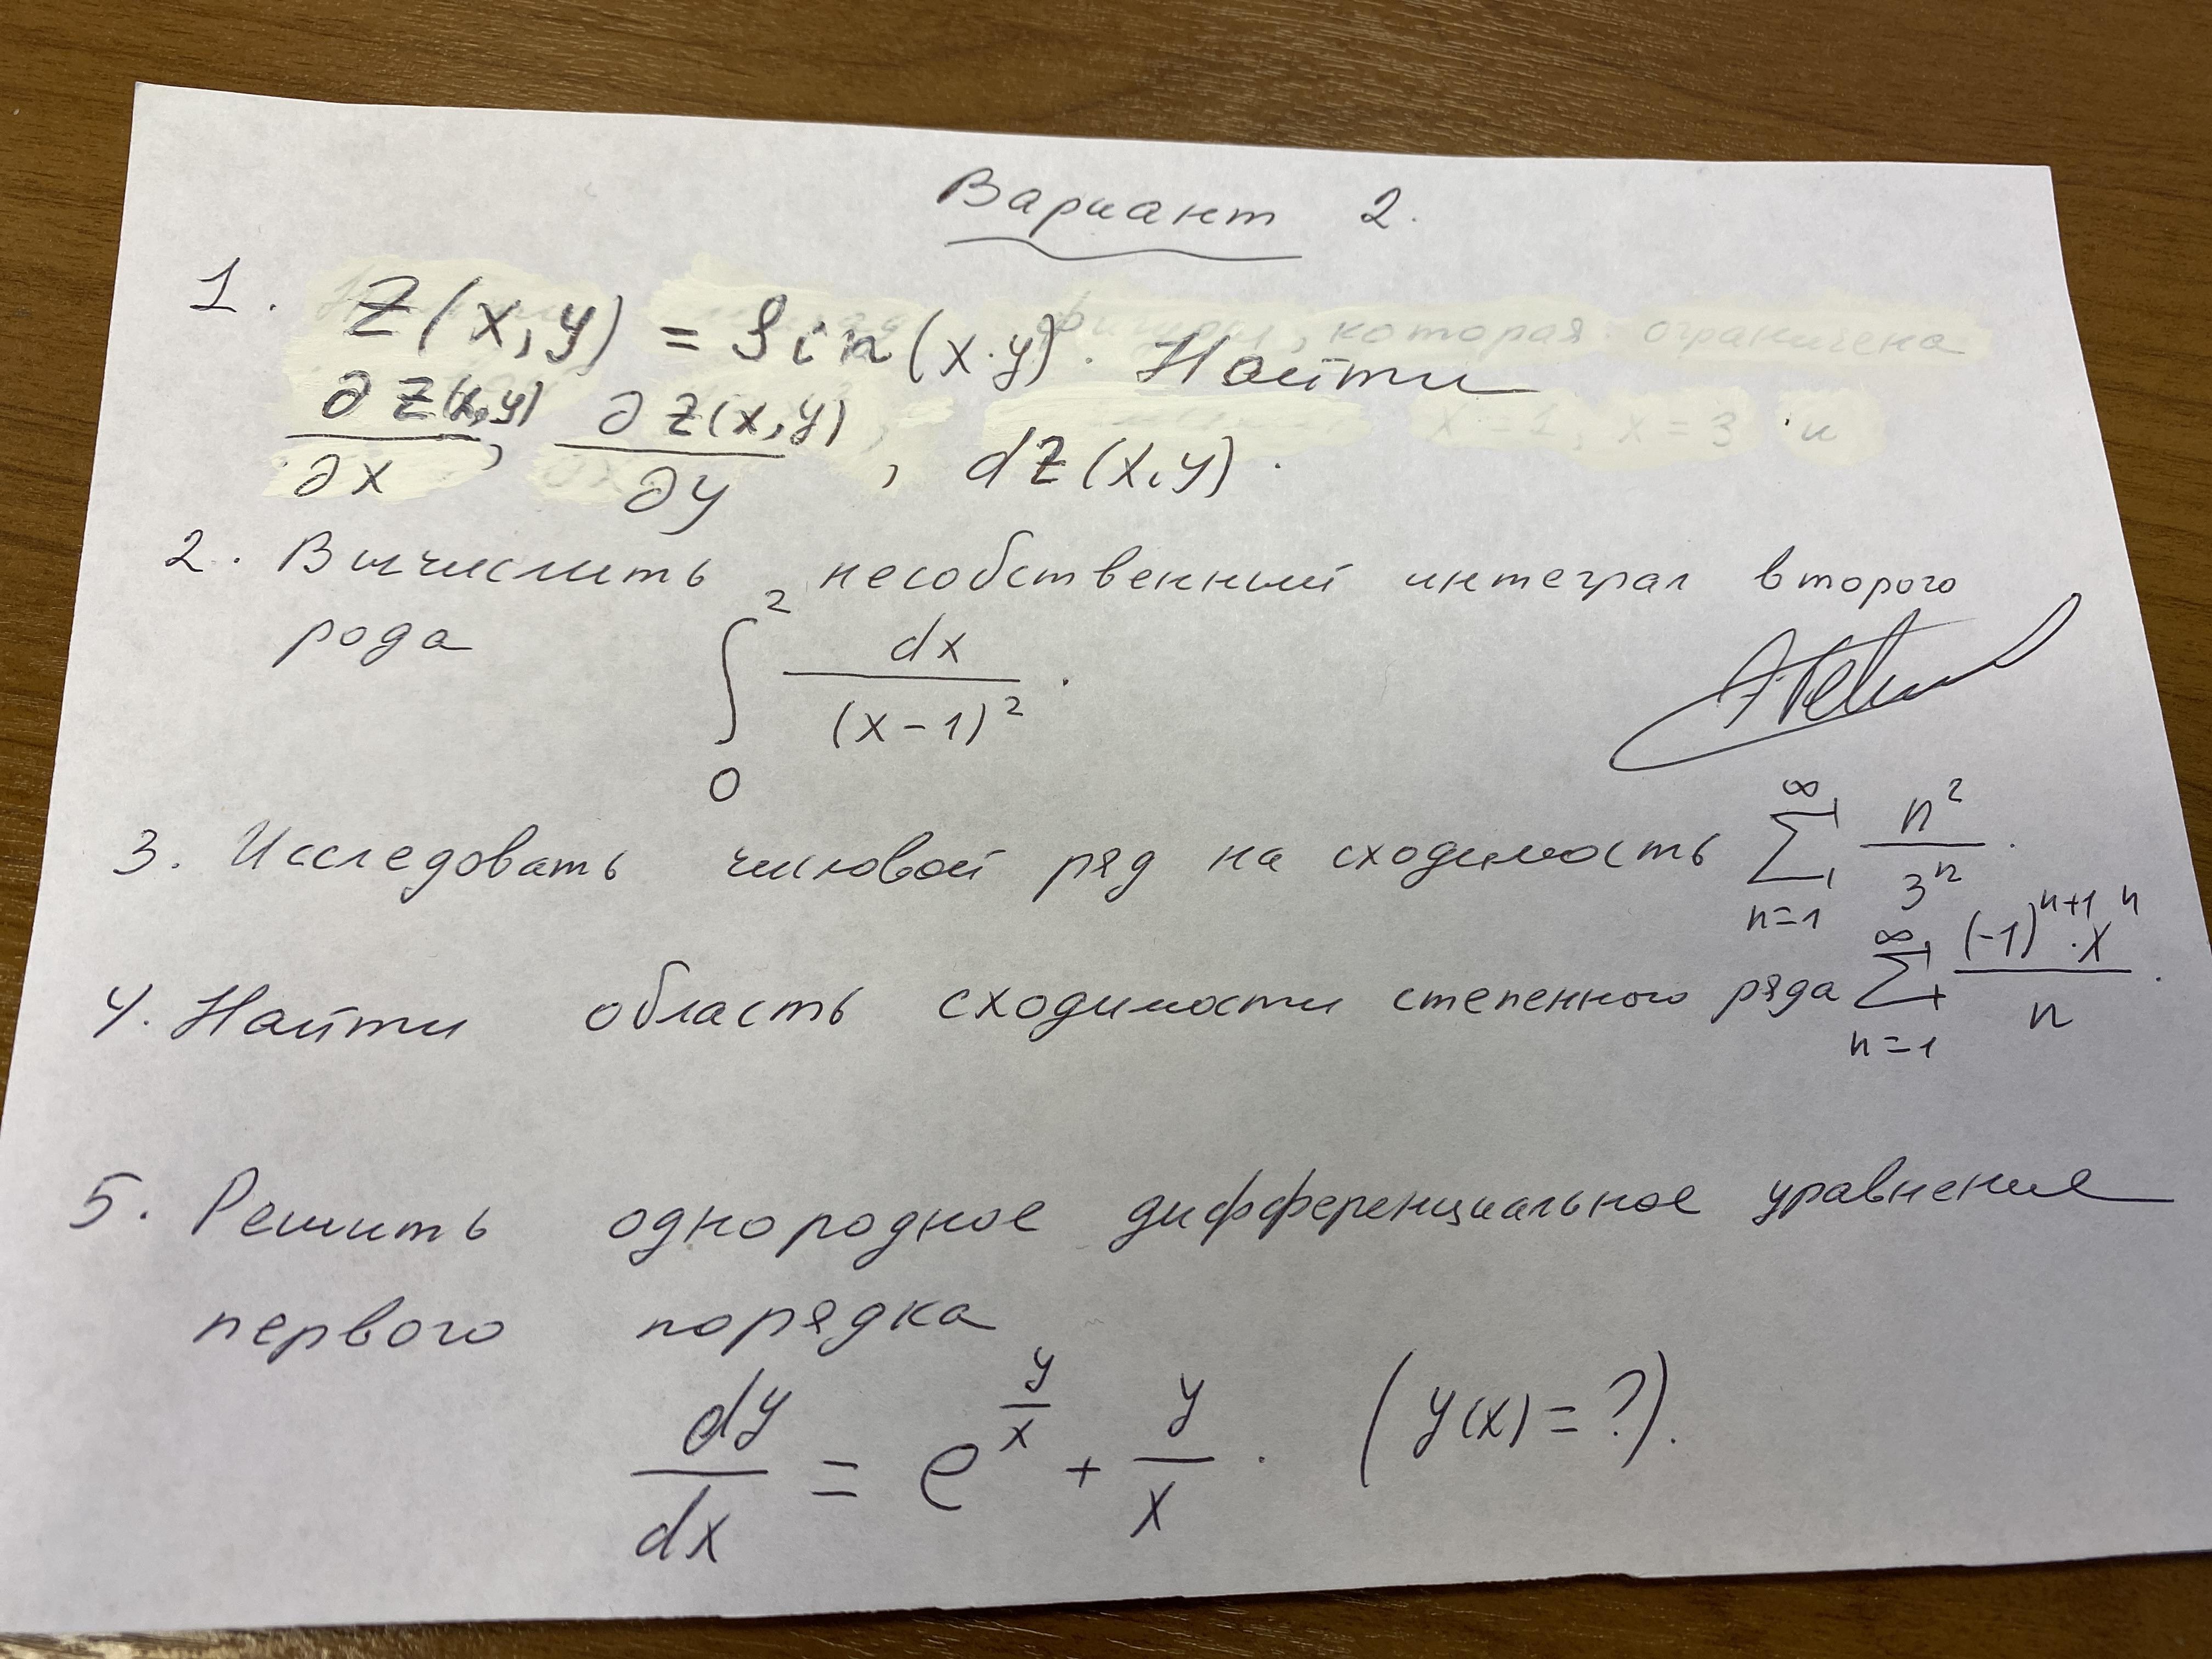 Вариант 2.
1. Z(x,y) = Sin(x·y). Найти
∂Z(x,y)/∂x, ∂Z(x,y)/∂y, dZ(x,y).
фигуры, которая ограничена
x = 1, x = 3 и
2. Вычислить несобственный интеграл второго
рода ∫₀² dx/(x-1)².
3. Исследовать числовой ряд на сходимость ∑ₙ₌₁^∞ n²/3ⁿ.
4. Найти область сходимости степенного ряда ∑ₙ₌₁^∞ (-1)ⁿ⁺¹·xⁿ/n.
5. Решить однородное дифференциальное уравнение
первого порядка
dy/dx = e^(y/x) + y/x. (y(x) = ?).